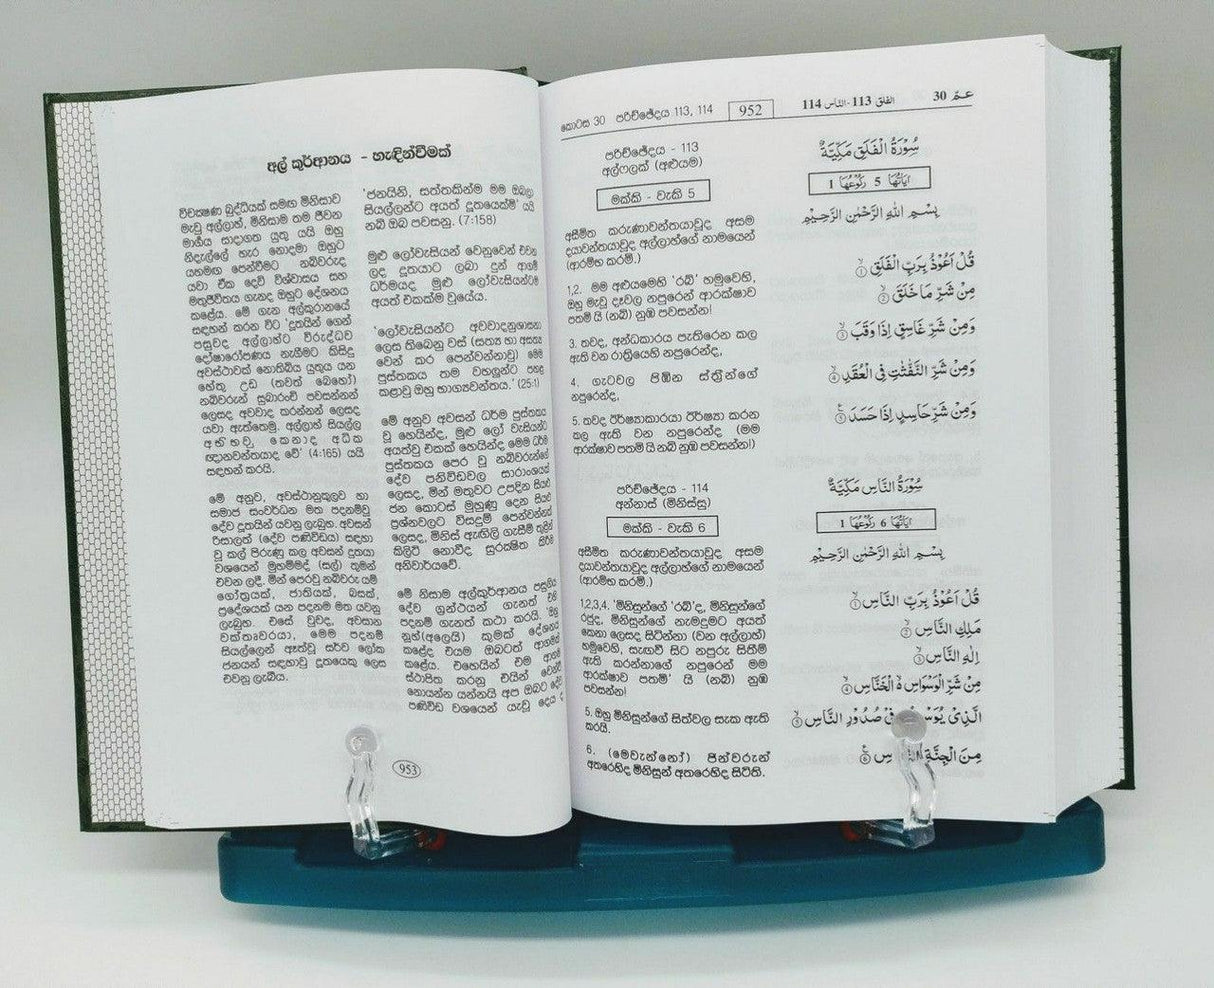 අල් කුර්ආනය - හැඳින්වීමක්
විචක්ෂණ බුද්ධියක් සමඟ මිනිසාව
මැවූ අල්ලාහ්, මිනිසාම තම ජීවන
මාර්ගය සාදාගත යුතු යයි ඔහු
නිදැල්ලේ හැර නොදමා ඔහුට
යහමඟ පෙන්වීමට නබිවරුද
යවා ඒක දෙව් විශ්වාසය සහ
මතුජීවිතය ගැනද ඔහුට දේශනය
කළේය. මේ ගැන අල්කුරානයේ
සඳහන් කරන විට 'දූතයින් ගෙන්
පසුවද අල්ලාහ්ට විරුද්ධව
දෝෂාරෝපණය නැගීමට කිසිදු
අවස්ථාවක් නොතිබිය යුතුය යන
හේතු උඩ (තවත් බෙහෝ)
නබිවරුන් සුබාරංචි පවසන්නන්
ලෙසද අවවාද කරන්නන් ලෙසද
යවා ඇත්තෙමු. අල්ලාහ් සියල්ල
අභිභවූ කෙනාද අධික
ඥානවන්තයාද වේ' (4:165) යයි
සඳහන් කරයි.
මේ අනුව, අවස්ථානුකූලව හා
සමාජ සංවර්ධන මත පදනම්වූ
දේව දූතයින් යවනු ලැබූහ. අවසන්
රිසාලත් (දේව පණිවිඩය) සඳහා
වූ කල් පිරුණු කල අවසන් දූතයා
වශයෙන් මුහම්මද් (සල්) තුමන්
එවන ලදී. මින් පෙරවූ නබිවරු යම්
ගෝත්‍රයක්, ජාතියක්, බසක්,
ප්‍රදේශයක් යන පදනම මත යවනු
ලැබූහ. එසේ වුවද, අවසාන
වක්තෘවරයා, මෙම පදනම්
සියල්ලෙන් ඈත්වූ සර්ව ලෝක
ජනයන් සඳහාවූ දූතයෙකු ලෙස
එවනු ලැබීය.
'ජනයිනි, සත්තකින්ම මම ඔබලා
සියල්ලන්ට අයත් දූතයෙක්මි' යයි
නබි ඔබ පවසනු. (7:158)
මුළු ලෝවැසියන් වෙනුවෙන් එවනු
ලද දූතයාට ලබා දුන් ආගම්
ධර්මයද මුළු ලෝවැසියන්ටම
අයත් එකක්ම වූයේය.
'ලෝවැසියන්ට අවවාදානුශාසනා
ලෙස තිබෙනු වස් (සත්‍ය හා අසත්‍ය
වෙන් කර පෙන්වන්නාවූ) මෙම
පුස්තකය තම වහලුන්ට පහළ
කළාවූ ඔහු භාග්‍යවන්තය.' (25:1)
මේ අනුව අවසන් ධර්ම පුස්තකය
වූ හෙයින්ද, මුළු ලෝ වැසියන්ට
අයත්වූ එකක් හෙයින්ද මෙම ධර්ම
පුස්තකය පෙර වූ නබිවරුන්ගේ
දේව පනිවිඩවල සාරාංශයක්
ලෙසද, මින් මතුවට උපදින සියළු
ජන කොටස් මුහුණු දෙන සියළු
ප්‍රශ්නවලට විසදුම් පෙන්වන්නක්
ලෙසද, මිනිස් ඇඟිලි ගැසීම් තුළින්
කිලිටි නොවීද සුරක්ෂිත කිරීම
අනිවාර්යවේ.
මේ නිසාම අල්කුර්ආනය පසුගිය
දේව ග්‍රන්ථයන් ගැනත් එහි
පදනම් ගැනත් කථා කරයි. 'ඔහු
නූහ්(අලෙයි) කුමක් දේශනය
කළේද එයම ඔබටත් ආගමක්
කළේය. එහෙයින් එම ආගම
ස්ථාපිත කරනු එයින් වෙන්වී
නොයන්න යන්නයි අප ඔබට දේව
පණිවිඩ වශයෙන් යැවූ දෙය ද
953
කොටස 30 පරිච්ඡේදය 113, 114
952
الفلق 113 - الناس 114
عـمّ 30
පරිච්ඡේදය - 113
අල්ෆලක් (අළුයම)
මක්කි - වැකි 5
අසීමිත කරුණාවන්තයාවූද අසම
දයාවන්තයාවූද අල්ලාහ්ගේ නාමයෙන්
(ආරම්භ කරමි.)
1,2. මම අළුයමෙහි 'රබ්' හමුවෙහි,
ඔහු මැවූ දෑවල නපුරෙන් ආරක්ෂාව
පතමි යි (නබි) නුඹ පවසන්න!
3. තවද, අන්ධකාරය පැතිරෙන කල
ඇති වන රාත්‍රියෙහි නපුරෙන්ද,
4. ගැටවල පිඹින ස්ත්‍රීන්ගේ
නපුරෙන්ද,
5. තවද ඊර්ෂ්‍යාකාරයා ඊර්ෂ්‍යා කරන
කල ඇති වන නපුරෙන්ද (මම
ආරක්ෂාව පතමි යි නබි නුඹ පවසන්න!)
පරිච්ඡේදය - 114
අන්නාස් (මිනිස්සු)
මක්කි - වැකි 6
අසීමිත කරුණාවන්තයාවූද අසම
දයාවන්තයාවූද අල්ලාහ්ගේ නාමයෙන්
(ආරම්භ කරමි.)
1,2,3,4. 'මිනිසුන්ගේ 'රබ්'ද, මිනිසුන්ගේ
රජුද, මිනිසුන්ගේ නැමදුමට අයත්
කෙනා ලෙසද සිටින්නා (වන අල්ලාහ්)
හමුවෙහි, සැඟවී සිට නපුරු සිතිවිලි
ඇති කරන්නාගේ නපුරෙන් මම
ආරක්ෂාව පතමි' යි (නබි) නුඹ
පවසන්න!
5. ඔහු මිනිසුන්ගේ සිත්වල සැක ඇති
කරයි.
6. (මෙවැන්නෝ) ජින්වරුන්
අතරෙහිද මිනිසුන් අතරෙහිද සිටිති.
سُوْرَةُ الْفَلَقِ مَكِّيَّةٌ
اٰيَاتُهَا 5 رُكُوْعُهَا 1
بِسْمِ اللّٰهِ الرَّحْمٰنِ الرَّحِيْمِ
قُلْ اَعُوْذُ بِرَبِّ الْفَلَقِ ۙ﴿1﴾
مِنْ شَرِّ مَا خَلَقَ ۙ﴿2﴾
وَمِنْ شَرِّ غَاسِقٍ اِذَا وَقَبَ ۙ﴿3﴾
وَمِنْ شَرِّ النَّفّٰثٰتِ فِى الْعُقَدِ ۙ﴿4﴾
وَمِنْ شَرِّ حَاسِدٍ اِذَا حَسَدَ ۠﴿5﴾
سُوْرَةُ النَّاسِ مَكِّيَّةٌ
اٰيَاتُهَا 6 رُكُوْعُهَا 1
بِسْمِ اللّٰهِ الرَّحْمٰنِ الرَّحِيْمِ
قُلْ اَعُوْذُ بِرَبِّ النَّاسِ ۙ﴿1﴾
مَلِكِ النَّاسِ ۙ﴿2﴾
اِلٰهِ النَّاسِ ۙ﴿3﴾
مِنْ شَرِّ الْوَسْوَاسِ ۙ الْخَنَّاسِ ۙ﴿4﴾
الَّذِىْ يُوَسْوِسُ فِىْ صُدُوْرِ النَّاسِ ۙ﴿5﴾
مِنَ الْجِنَّةِ وَالنَّاسِ ۠﴿6﴾